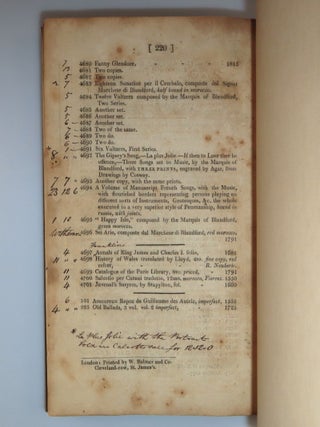 [ 220 ]
7 4680 Fanny Glendore, 1815
4681 Two copies.
5 4682 Two copies.
2 7 4683 Eighteen Sonatine per il Cembalo, composte dal Signor
Marchese di Blandford, half bound in morocco.
5 4684 Twelve Vultures composed by the Marquis of Blandford,
Two Series.
5 4685 Another set.
5 4686 Another set.
4687 Another set.
4688 Two of the same.
4689 Two do.
4690 Two do.
4691 Six Vultures, First Series.
4692 The Gipsey's Song,—La plus Jolie.—If then to Love thou be
—Three Songs set to Music, by the Marquis of
Blandford, with THREE PRINTS, engraved by Agar, from
Drawings by Cosway.
7 7 4693 Another copy, with the same prints.
23 12 6 4694 A Volume of Manuscript, French Songs, with the Music,
with flourished borders representing persons playing on
different sorts of Instruments, Grotesques, &c. the whole
executed in a very superior style of Penmanship, bound in
russia, with joints.
1 10 4695 "Happy Isle," composed by the Marquis of Blandford,
green morocco.
4696 Sei Arie, composte dal Marchese di Blandford, red morocco,
1791
4697 Annals of King James and Charles I. folio, 1681
4698 History of Wales translated by Lloyd, &c. fine copy, red
R. Newberie.
11 4699 Catalogue of the Paris Library, &c. priced, 1791
11 4700 Salustio per Carani tradutto, 12mo. morocco, Fiorenz. 1550
4 4701 Juvenal's Satyres, by Stapylton, fol. 1660
6 101 Amoureux Repos de Guillaume des Autelz, imperfect, 1553
4 225 Old Ballads, 3 vol. vol. 2 imperfect, 1723
La Plus Jolie with the Portraits
sale for
London: Printed by W. Bulmer and Co.
Cleveland-row, St. James's.